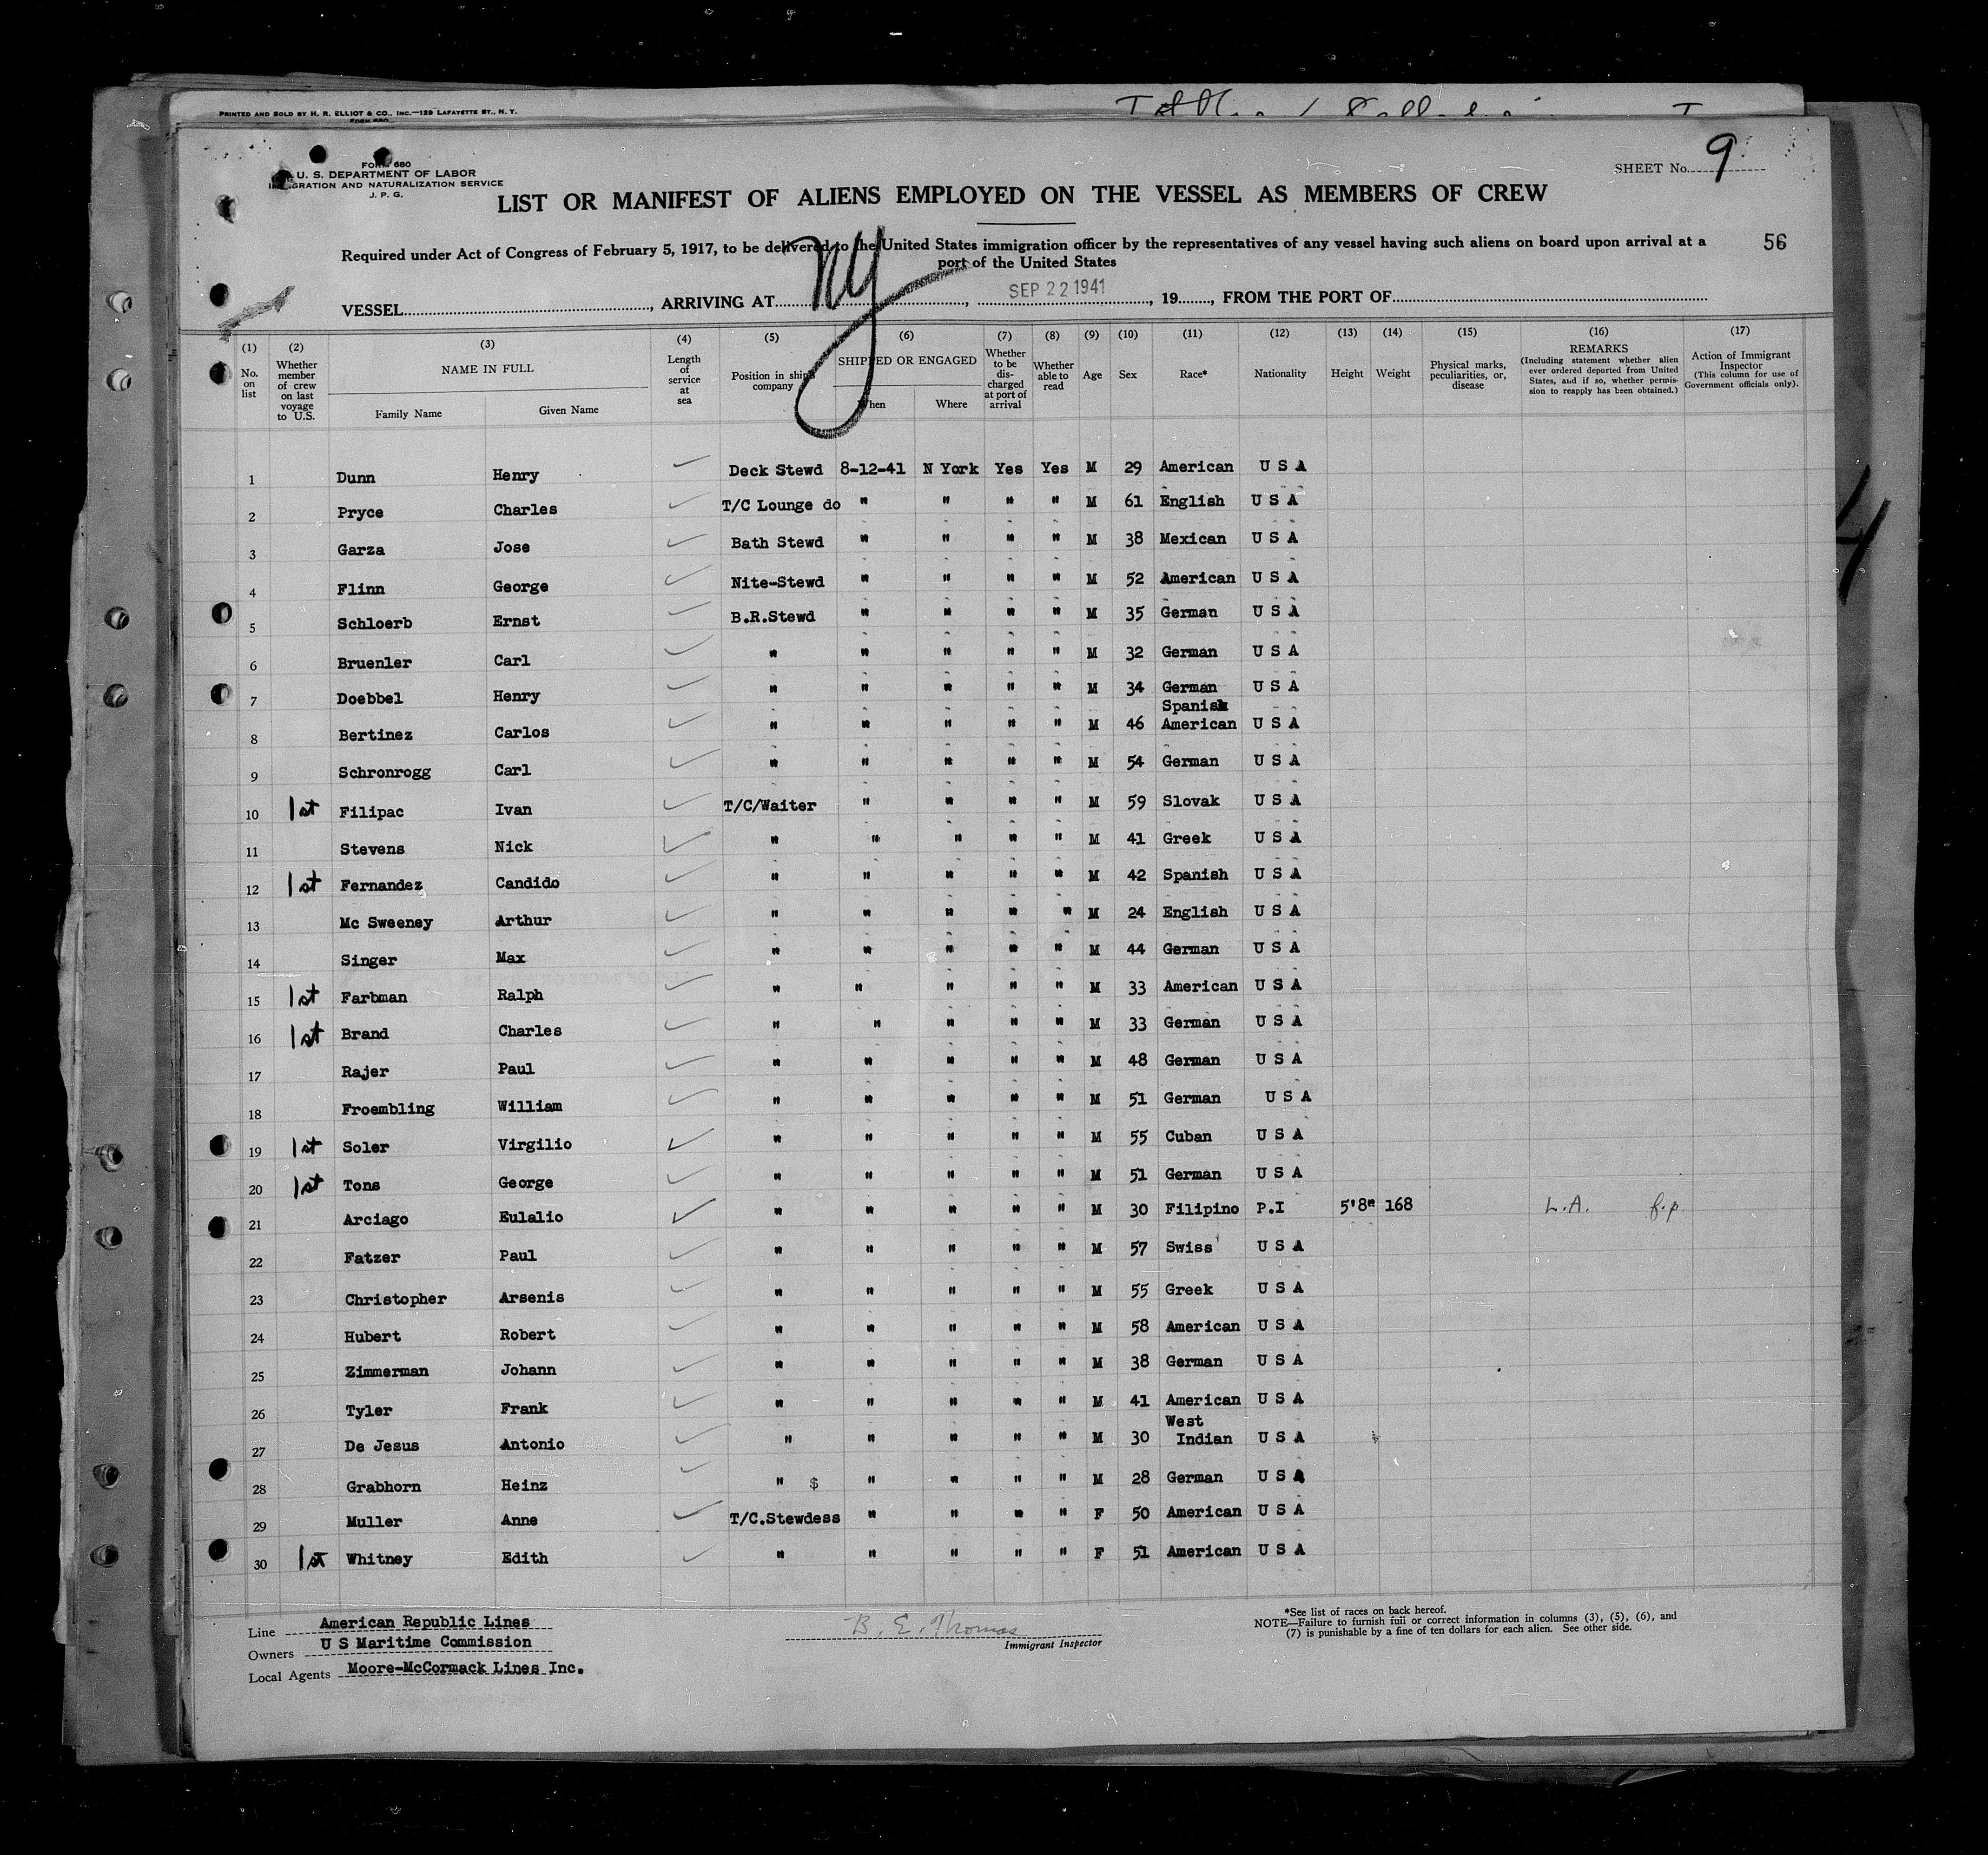 PRINTED AND SOLD BY H. R. ELLIOT & CO., INC.—129 LAFAYETTE ST., N. Y.
FORM 680
U. S. DEPARTMENT OF LABOR
IMMIGRATION AND NATURALIZATION SERVICE
J. P. G.
SHEET No. 9
LIST OR MANIFEST OF ALIENS EMPLOYED ON THE VESSEL AS MEMBERS OF CREW
Required under Act of Congress of February 5, 1917, to be delivered to the United States immigration officer by the representatives of any vessel having such aliens on board upon arrival at a
port of the United States
56
VESSEL, ARRIVING AT NY, SEP 22 1941, 19, FROM THE PORT OF
(1) No. on list (2) Whether member of crew on last voyage to U.S. (3) NAME IN FULL Family Name Given Name (4) Length of service at sea (5) Position in ship's company (6) SHIPPED OR ENGAGED When Where (7) Whether to be discharged at port of arrival (8) Whether able to read (9) Age (10) Sex (11) Race* (12) Nationality (13) Height (14) Weight (15) Physical marks, peculiarities, or, disease (16) REMARKS (Including statement whether alien ever ordered deported from United States, and if so, whether permission to reapply has been obtained.) (17) Action of Immigrant Inspector (This column for use of Government officials only).
1 Dunn Henry ✓ Deck Stewd 8-12-41 N York Yes Yes M 29 American U S A
2 Pryce Charles ✓ T/C Lounge do " " " " M 61 English U S A
3 Garza Jose ✓ Bath Stewd " " " " M 38 Mexican U S A
4 Flinn George ✓ Nite-Stewd " " " " M 52 American U S A
5 Schloerb Ernst ✓ B.R.Stewd " " " " M 35 German U S A
6 Bruenler Carl ✓ " " " " " M 32 German U S A
7 Doebbel Henry ✓ " " " " " M 34 German U S A
8 Bertinez Carlos ✓ " " " " " M 46 Spanish American U S A
9 Schronrogg Carl ✓ " " " " " M 54 German U S A
10 1st Filipac Ivan ✓ T/C/Waiter " " " " M 59 Slovak U S A
11 Stevens Nick ✓ " " " " " M 41 Greek U S A
12 1st Fernandez Candido ✓ " " " " " M 42 Spanish U S A
13 Mc Sweeney Arthur ✓ " " " " " M 24 English U S A
14 Singer Max ✓ " " " " " M 44 German U S A
15 1st Farbman Ralph ✓ " " " " " M 33 American U S A
16 1st Brand Charles ✓ " " " " " M 33 German U S A
17 Rajer Paul ✓ " " " " " M 48 German U S A
18 Froembling William ✓ " " " " " M 51 German U S A
19 1st Soler Virgilio ✓ " " " " " M 55 Cuban U S A
20 1st Tons George ✓ " " " " " M 51 German U S A
21 Arciago Eulalio ✓ " " " " " M 30 Filipino P.I 5'8" 168 L.A. f.p
22 Fatzer Paul ✓ " " " " " M 57 Swiss U S A
23 Christopher Arsenis ✓ " " " " " M 55 Greek U S A
24 Hubert Robert ✓ " " " " " M 58 American U S A
25 Zimmerman Johann ✓ " " " " " M 38 German U S A
26 Tyler Frank ✓ " " " " " M 41 American U S A
27 De Jesus Antonio ✓ " " " " " M 30 West Indian U S A
28 Grabhorn Heinz ✓ " $ " " " " M 28 German U S A
29 Muller Anne ✓ T/C.Stewdess " " " " F 50 American U S A
30 1st Whitney Edith ✓ " " " " " F 51 American U S A
Line American Republic Lines
Owners U S Maritime Commission
Local Agents Moore-McCormack Lines Inc.
B. E. Thomas
Immigrant Inspector
*See list of races on back hereof.
NOTE—Failure to furnish full or correct information in columns (3), (5), (6), and
(7) is punishable by a fine of ten dollars for each alien. See other side.